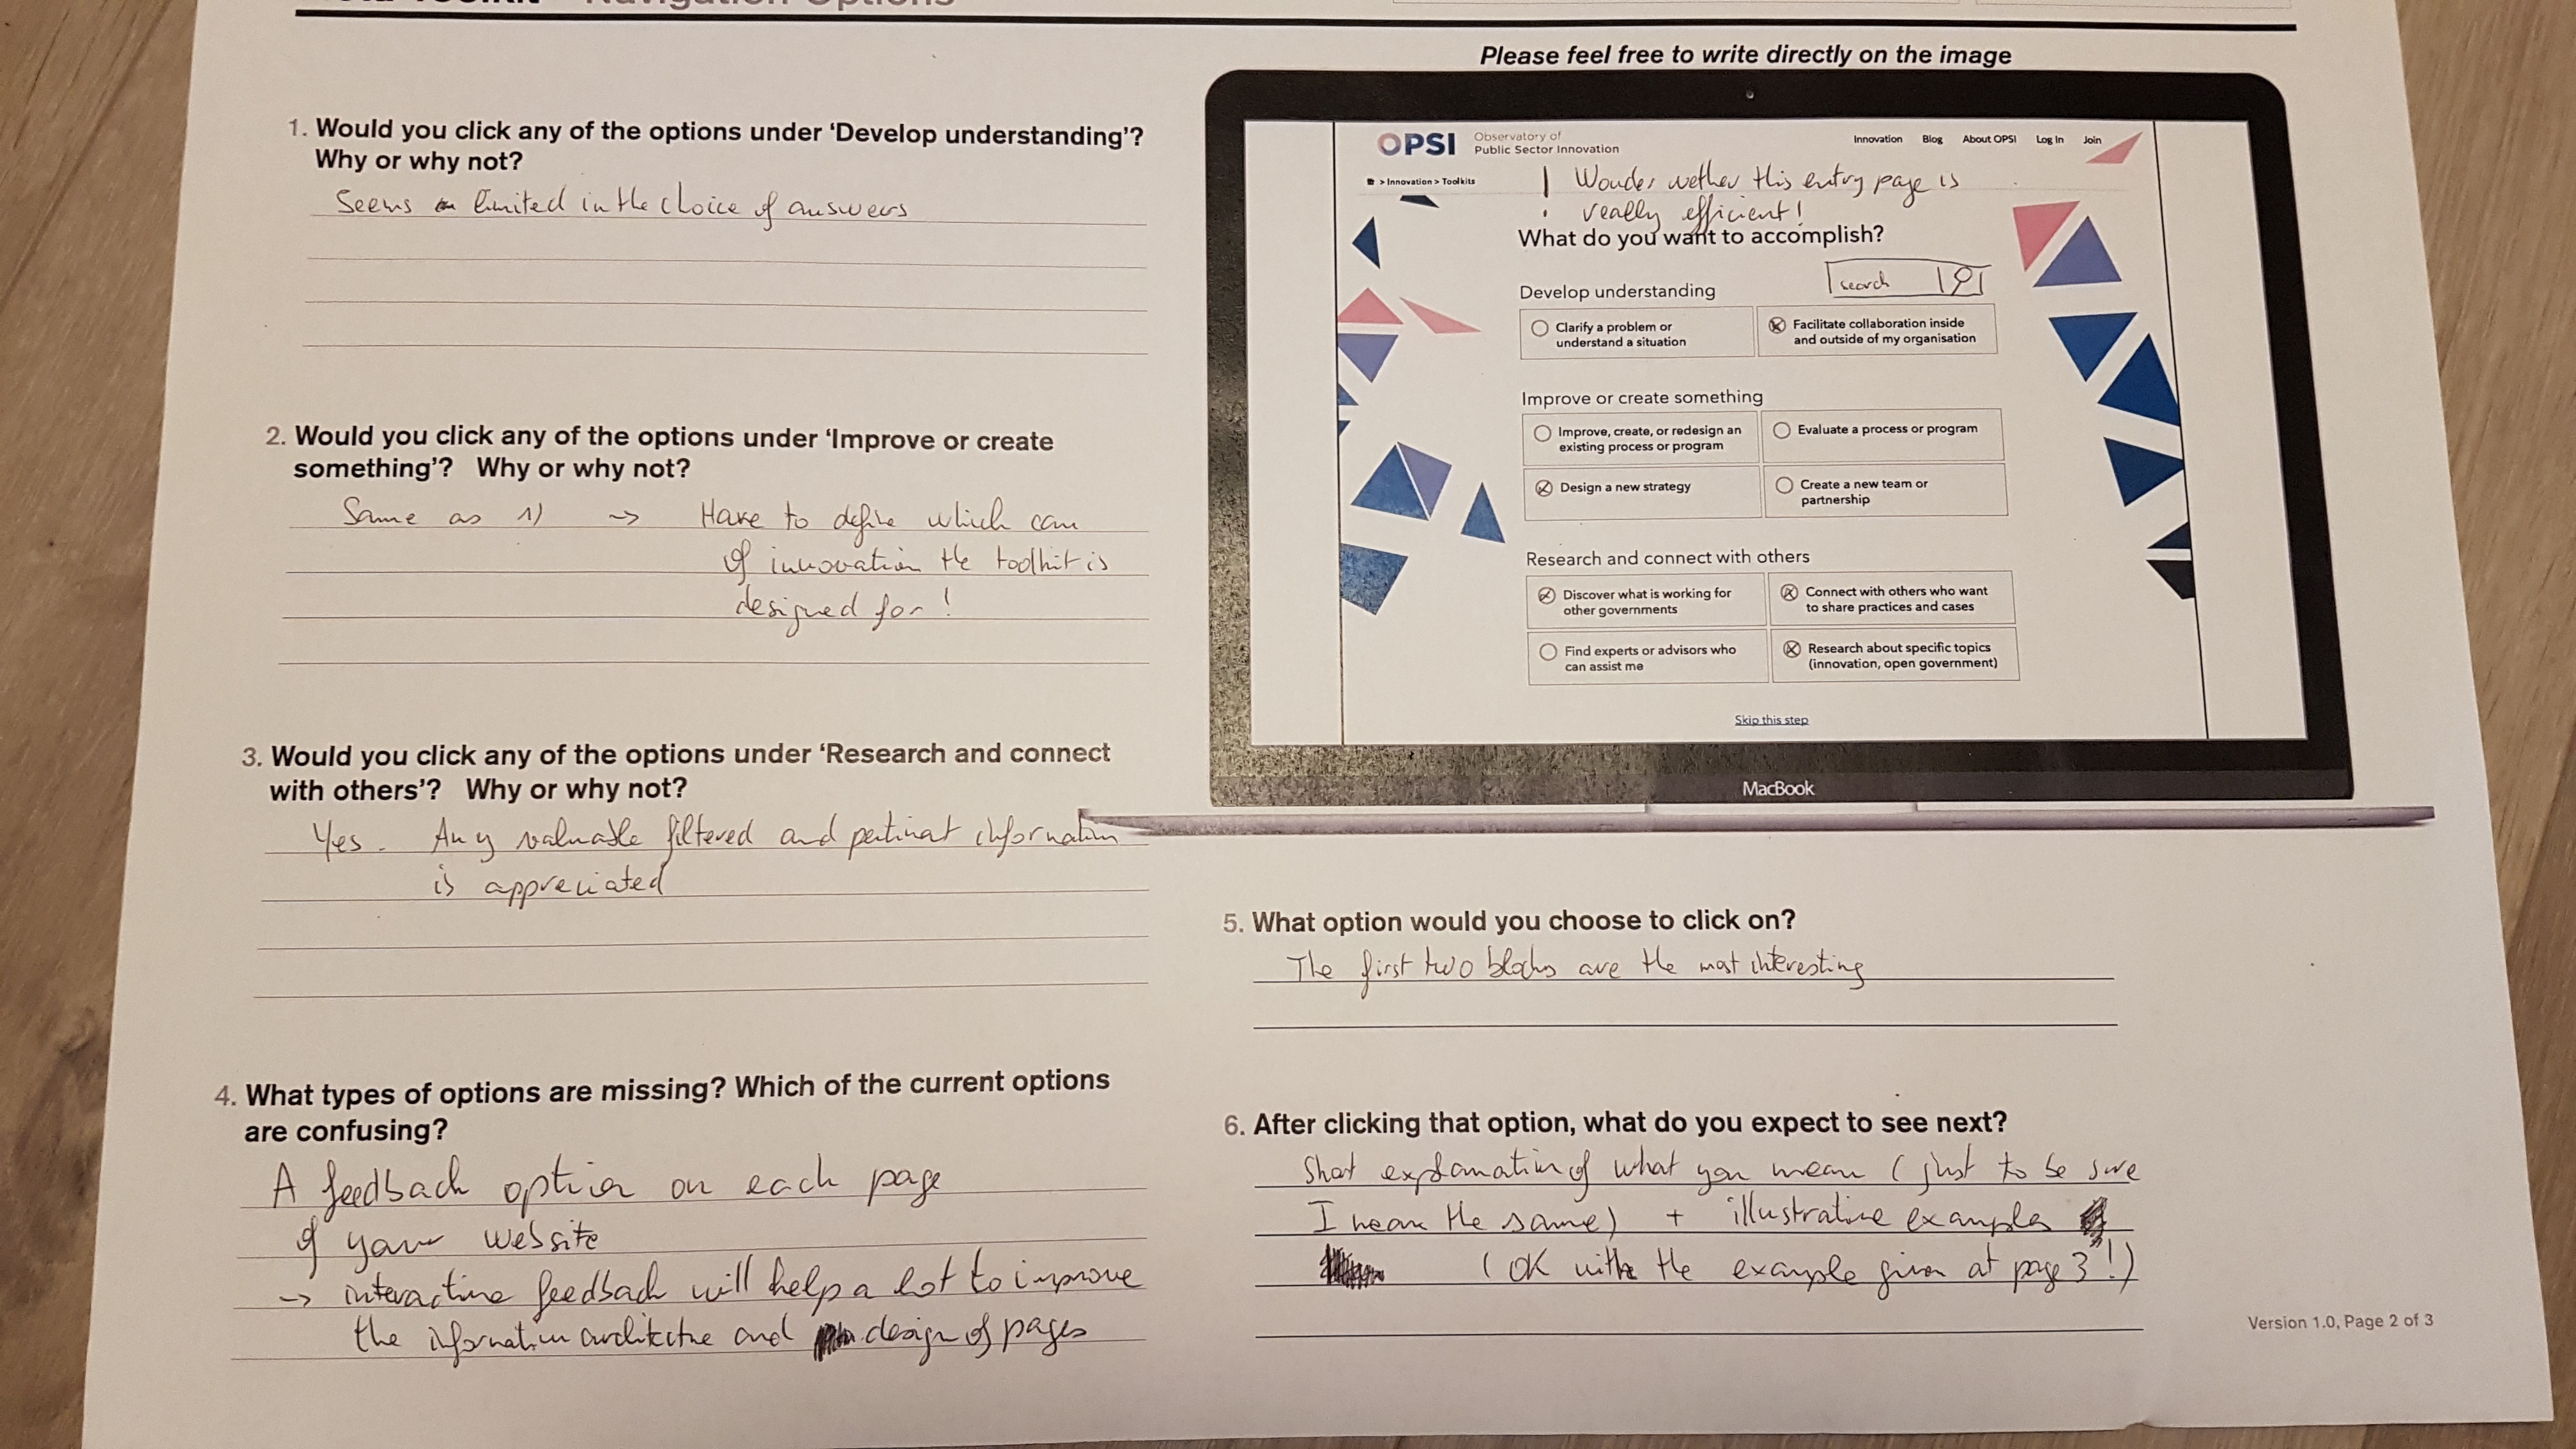 Navigation Options
Please feel free to write directly on the image
1. Would you click any of the options under ‘Develop understanding’?
Why or why not?
Seems limited in the choice of answers
2. Would you click any of the options under ‘Improve or create
something’? Why or why not?
Same as 1) -> Have to define which can
of innovation the toolkit is
designed for !
3. Would you click any of the options under ‘Research and connect
with others’? Why or why not?
Yes. Any valuable filtered and pertinat information
is appreciated
4. What types of options are missing? Which of the current options
are confusing?
A feedback option on each page
of your website
-> interactive feedback will help a lot to improve
the information architecture and design of pages
OPSI
Observatory of
Public Sector Innovation
Innovation Blog About OPSI Log In Join
> Innovation > Toolkits
! Wonder wether this entry page is
really efficient!
What do you want to accomplish?
search
Develop understanding
Clarify a problem or
understand a situation
Facilitate collaboration inside
and outside of my organisation
Improve or create something
Improve, create, or redesign an
existing process or program
Evaluate a process or program
Design a new strategy
Create a new team or
partnership
Research and connect with others
Discover what is working for
other governments
Connect with others who want
to share practices and cases
Find experts or advisors who
can assist me
Research about specific topics
(innovation, open government)
Skip this step
MacBook
5. What option would you choose to click on?
The first two blocks are the most interesting
6. After clicking that option, what do you expect to see next?
Short explanation of what you mean (just to be sure
I mean the same) + illustrative examples
(OK with the example given at page 3 !)
Version 1.0, Page 2 of 3